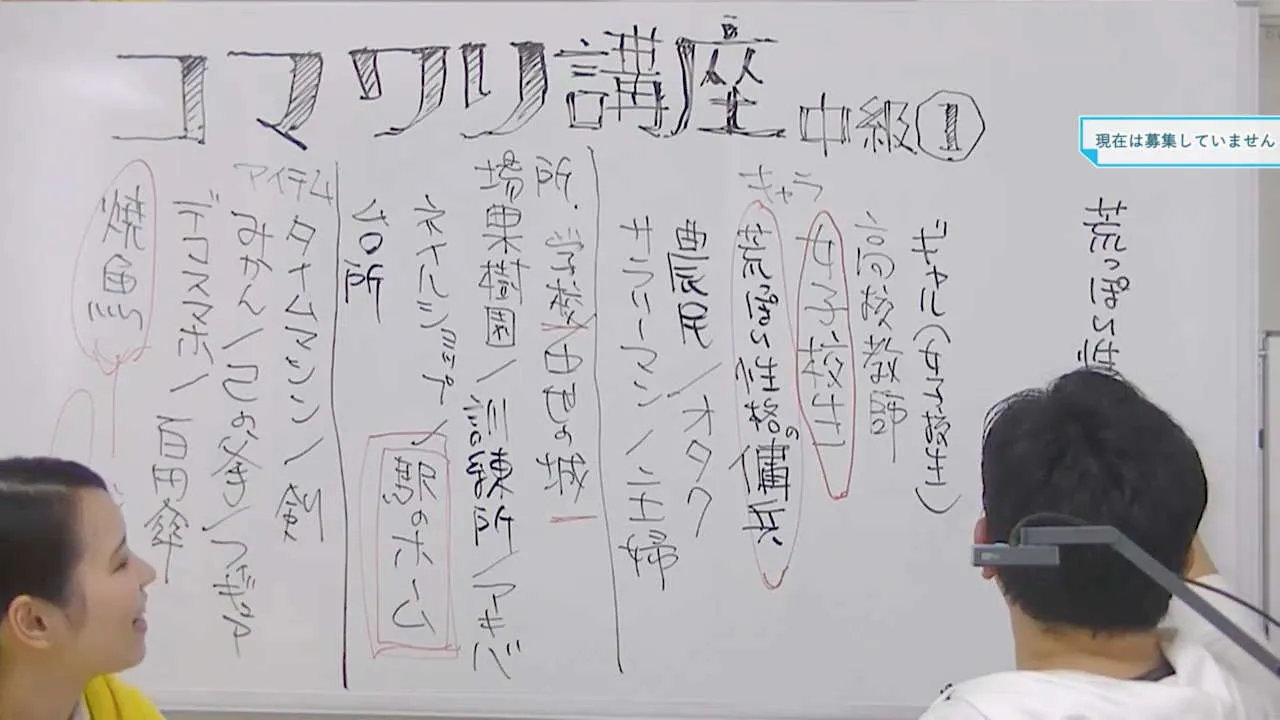 コマワリ講座 中級①
現在は募集していません
荒っぽい性
ギャル(女子校生)
高校教師
キャラ
女子校生
荒っぽい性格の傭兵
農民/オタク
サラリーマン/主婦
場所・学校/中世の城
果樹園/訓練所/アキバ
ネイルショップ/駅のホーム
台所
アイテム
タイムマシン/剣
みかん/フィギュア
デコスマホ/百円傘
焼魚